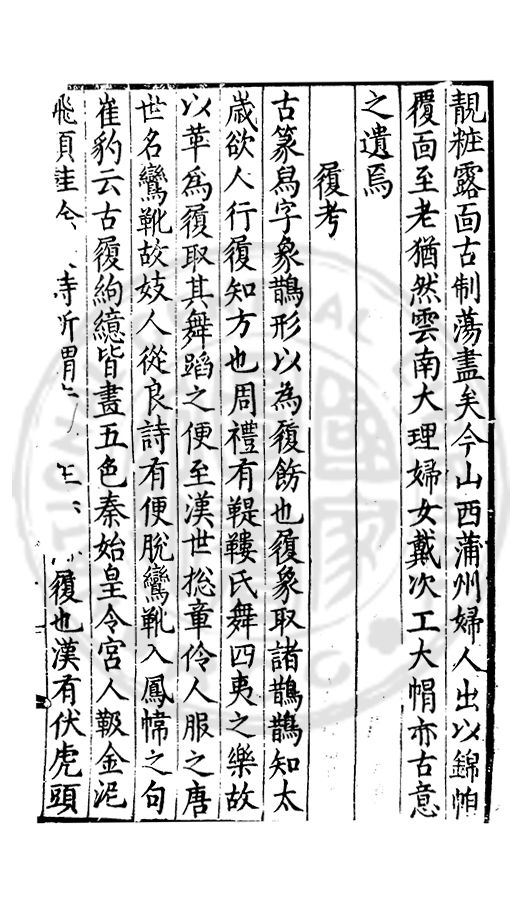 靚粧露面古制蕩盡矣今山西蒲州婦人出以錦帕
覆面至老猶然雲南大理婦女戴次工大帽亦古意
之遺焉
履考
古篆舄字象鵲形以為履飭也履象取諸鵲鵲知太
歲欲人行履知方也周禮有鞮鞻氏舞四夷之樂故
以革為履取其舞蹈之便至漢世緫章伶人服之唐
世名鸞靴故妓人從良詩有便脫鸞靴入鳳幃之句
崔豹云古履絇繶皆畫五色秦始皇令宮人靸金泥
飛頭鞋今 履也漢有伏虎頭